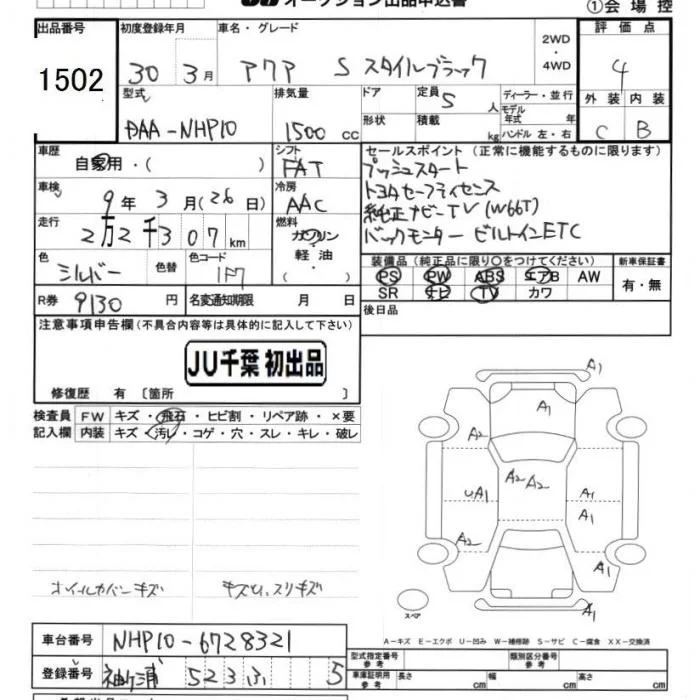 オークション出品申込書
①会場控
出品番号 初度登録年月 車名・グレード 2WD・4WD 評価点
1502 30 3月 アクア S スタイルブラック 4
型式 排気量 ドア 定員 5人 ディーラー・並行 外装 内装
DAA-NHP10 1500cc 形状 積載 kg モデル年式 年 ハンドル 左・右 C B
車歴 自家用・( ) シフト FAT セールスポイント (正常に機能するものに限ります)
プッシュスタート
車検 9年3月(26日) 冷房 AAC トヨタセーフティセンス
純正ナビーTV (W66T)
走行 2万2千307km 燃料 ガソリン・軽油・( ) バックモニター ビルトインETC
色 シルバー 色替 色コード 1F7 装備品 (純正品に限り○をつけてください) 新車保証書
PS PW ABS エアB AW 有・無
SR ナビ TV カワ
R券 9130円 名変通知期限 月 日 後日品
注意事項申告欄 (不具合内容等は具体的に記入して下さい)
JU千葉 初出品
修復歴 有 〔箇所 〕
検査員 FW キズ・飛石・ヒビ割・リペア跡・×要
記入欄 内装 キズ・汚レ・コゲ・穴・スレ・キレ・破レ
A1
A1
A2
A2 A2
UA1 A1
A1
A2 A1
A1
スペア
ホイールカバーキズ キズU.スリキズ
A-キズ E-エクボ U-凹み W-補修跡 S-サビ C-腐食 XX-交換済
車台番号 NHP10-6728321
型式指定番号 参考 類別区分番号 参考
登録番号 袖ヶ浦 523 ふ 5
車庫証明用 参考 長さ cm 幅 cm 高さ cm